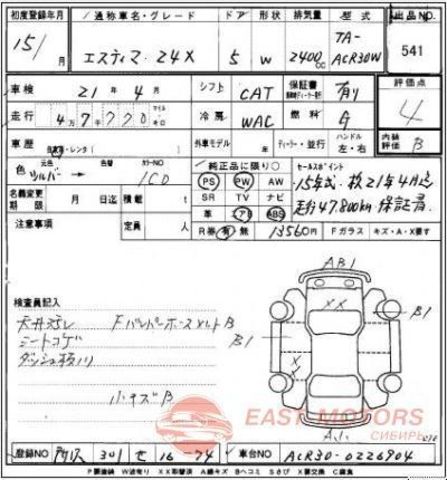 初度登録年月 通称車名・グレード ドア 形状 排気量 型式 出品NO.
15/ 月 エスティマ 24X 5 W 2400cc TA-ACR30W 541
車検 21年 4月 シフト CAT 保証書 有り 評価点 4
走行 4万7千 冷房 WAC 燃料 G 内装評価 B
車歴 自家・レンタ 外車モデル 年 ディーラー・並行 ハンドル 左・右
色 元色 シルバー→ 色替 カラーNO 1C0 純正品に限り○ セールスポイント
PS PW AW 15年式 検21年4月迄
名義変更期限 月 日迄 積載 t SR TV ナビ 走行47,800km 保証書
革 エアB ABS
注意事項 定員 人 R券 有 無 13560円 Fガラス キズ・A・X要す
AB1
検査員記入 XX
B1 B1
天井汚レ Fバンパーホース
シートコゲ X
ダッシュ
小キズB
EAST MOTORS
СИБИРЬ
A1
登録NO 301 せ 16-74 車台NO ACR30-0226904
P要塗装 W波有り XX交換済 A線キズ Bヘコミ Sさび X要交換 C腐食